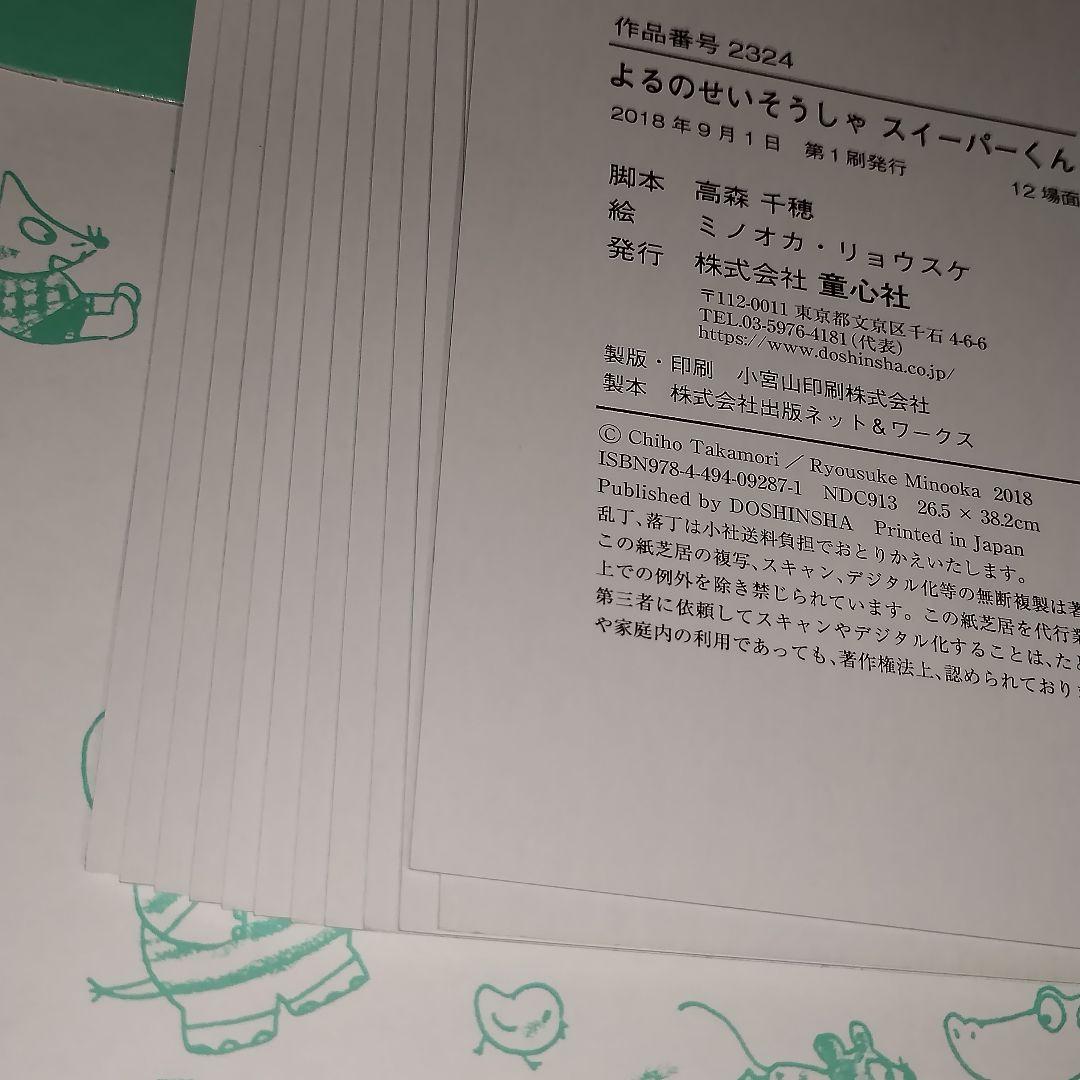 作品番号 2324
よるのせいそうしゃ スイーパーくん
2018年9月1日 第1刷発行
12場面
脚本 高森 千穂
絵 ミノオカ・リョウスケ
発行 株式会社 童心社
〒112-0011 東京都文京区千石 4-6-6
TEL.03-5976-4181(代表)
https://www.doshinsha.co.jp/
製版・印刷 小宮山印刷株式会社
製本 株式会社出版ネット&ワークス
© Chiho Takamori／Ryousuke Minooka 2018
ISBN978-4-494-09287-1 NDC913 26.5 × 38.2cm
Published by DOSHINSHA Printed in Japan
乱丁、落丁は小社送料負担でおとりかえいたします。
この紙芝居の複写、スキャン、デジタル化等の無断複製は著
上での例外を除き禁じられています。この紙芝居を代行業
第三者に依頼してスキャンやデジタル化することは、たと
や家庭内の利用であっても、著作権法上、認められており